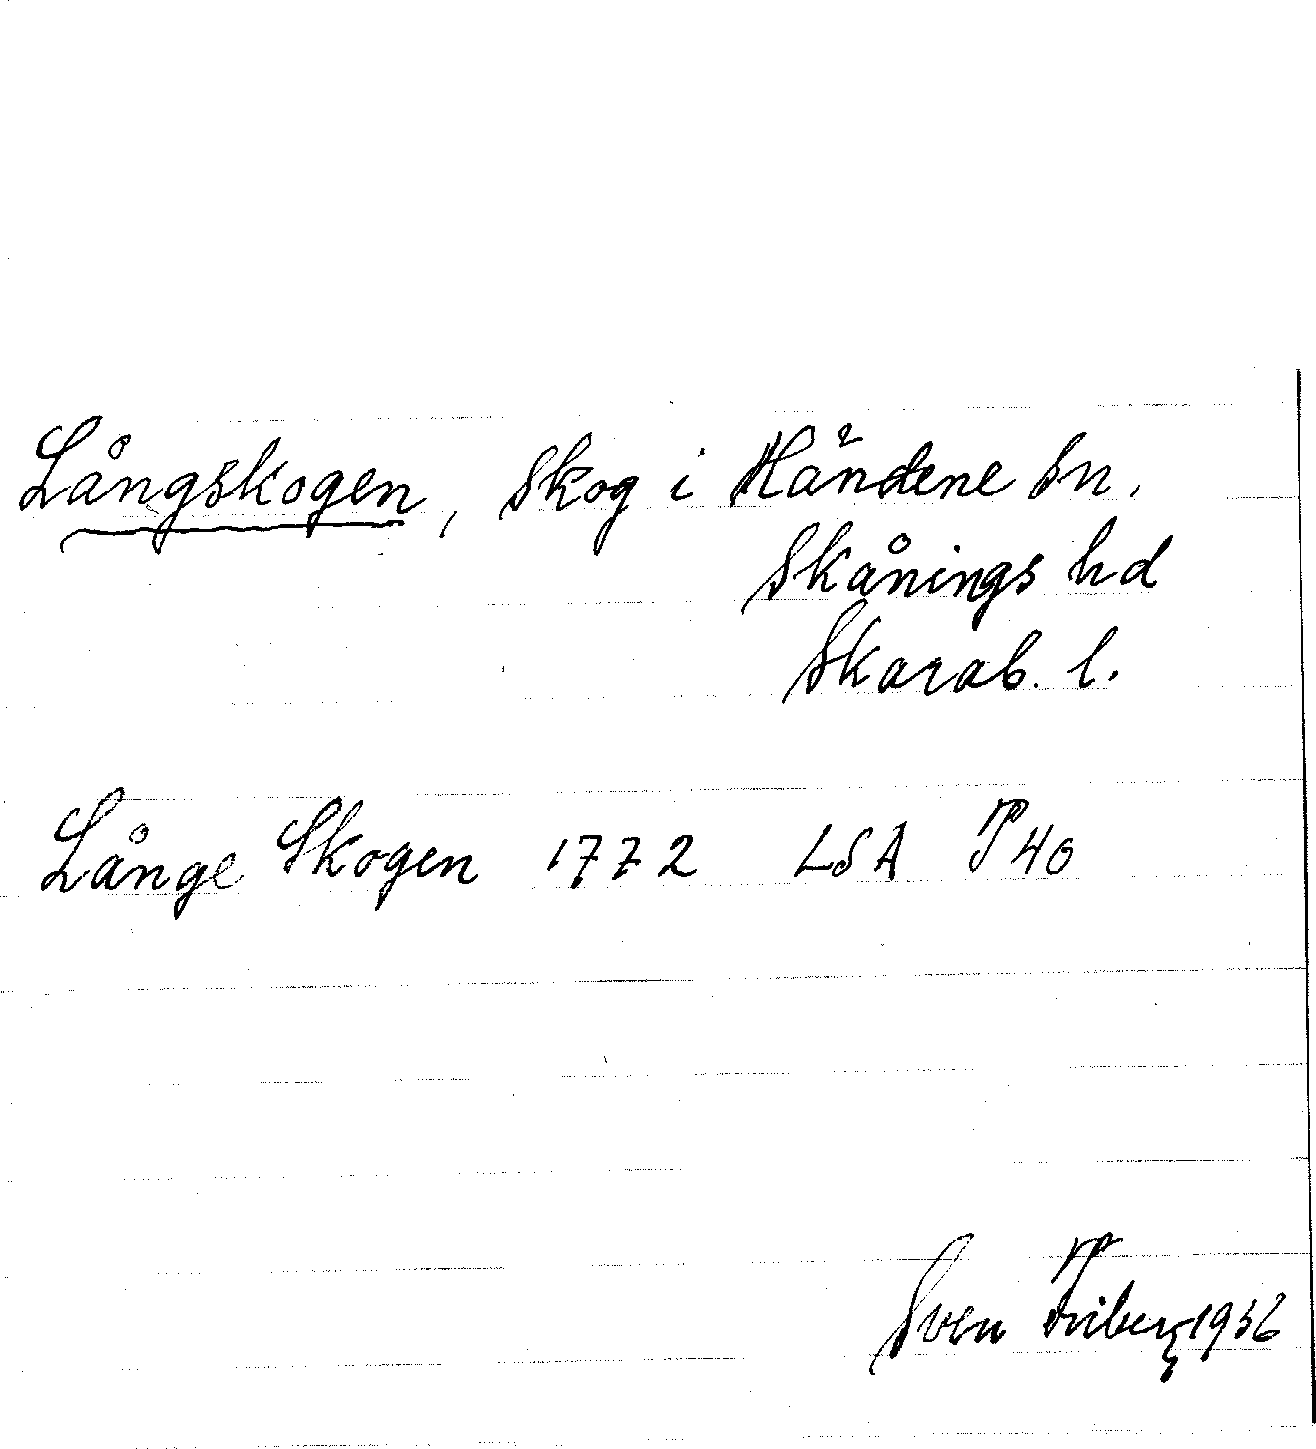 Långskogen, Skog i Händene Sn,
Skånings hd
Skarab. l.
Långe Skogen 1772 LSA P 40
Sven Friberg 1936